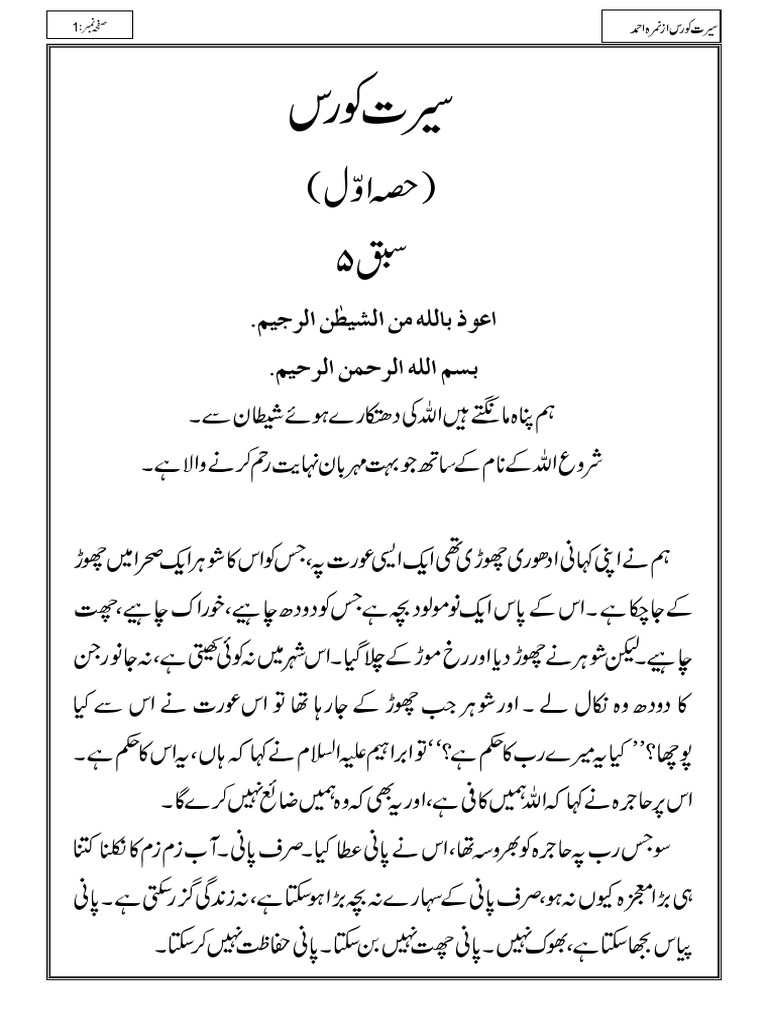 سیرت کورس از نمرہ احمد
صفحہ نمبر: 1
سیرت کورس
(حصہ اوّل)
سبق ۵
اعوذ بالله من الشیطٰن الرجیم.
بسم الله الرحمن الرحیم.
ہم پناہ مانگتے ہیں اللہ کی دھتکارے ہوئے شیطان سے۔
شروع اللہ کے نام کے ساتھ جو بہت مہربان نہایت رحم کرنے والا ہے۔
ہم نے اپنی کہانی ادھوری چھوڑی تھی ایک ایسی عورت پہ، جس کو اس کا شوہر ایک صحرا میں چھوڑ
کے جا چکا ہے۔ اس کے پاس ایک نومولود بچہ ہے جس کو دودھ چاہیے، خوراک چاہیے، چھت
چاہیے۔ لیکن شوہر نے چھوڑ دیا اور رخ موڑ کے چلا گیا۔ اس شہر میں نہ کوئی کھیتی ہے، نہ جانور جن
کا دودھ وہ نکال لے ۔ اور شوہر جب چھوڑ کے جا رہا تھا تو اس عورت نے اس سے کیا
پوچھا؟ ’’کیا یہ میرے رب کا حکم ہے؟‘‘ تو ابراہیم علیہ السلام نے کہا کہ ہاں، یہ اس کا حکم ہے۔
اس پر حاجرہ نے کہا کہ اللہ ہمیں کافی ہے، اور یہ بھی کہ وہ ہمیں ضائع نہیں کرے گا۔
سو جس رب پہ حاجرہ کو بھروسہ تھا، اس نے پانی عطا کیا۔ صرف پانی۔ آب زم زم کا نکلنا کتنا
ہی بڑا معجزہ کیوں نہ ہو، صرف پانی کے سہارے نہ بچہ بڑا ہو سکتا ہے، نہ زندگی گزر سکتی ہے۔ پانی
پیاس بجھا سکتا ہے، بھوک نہیں۔ پانی چھت نہیں بن سکتا۔ پانی حفاظت نہیں کر سکتا۔